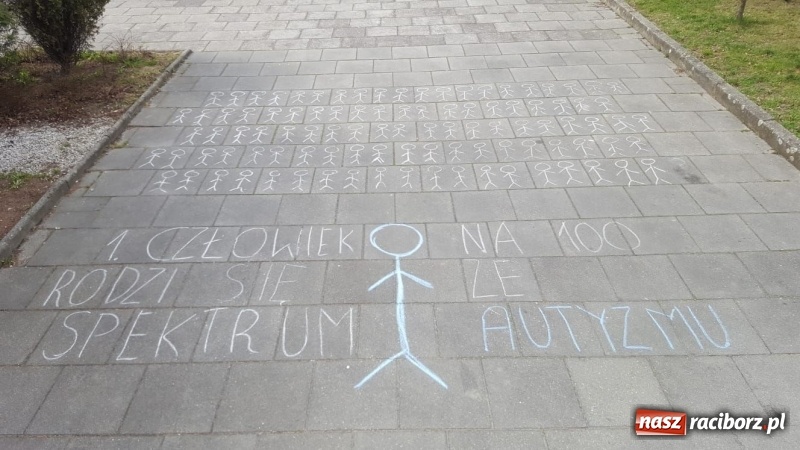 1. CZŁOWIEK NA 100
RODZI SIĘ ZE
SPEKTRUM AUTYZMU
nasz raciborz.pl